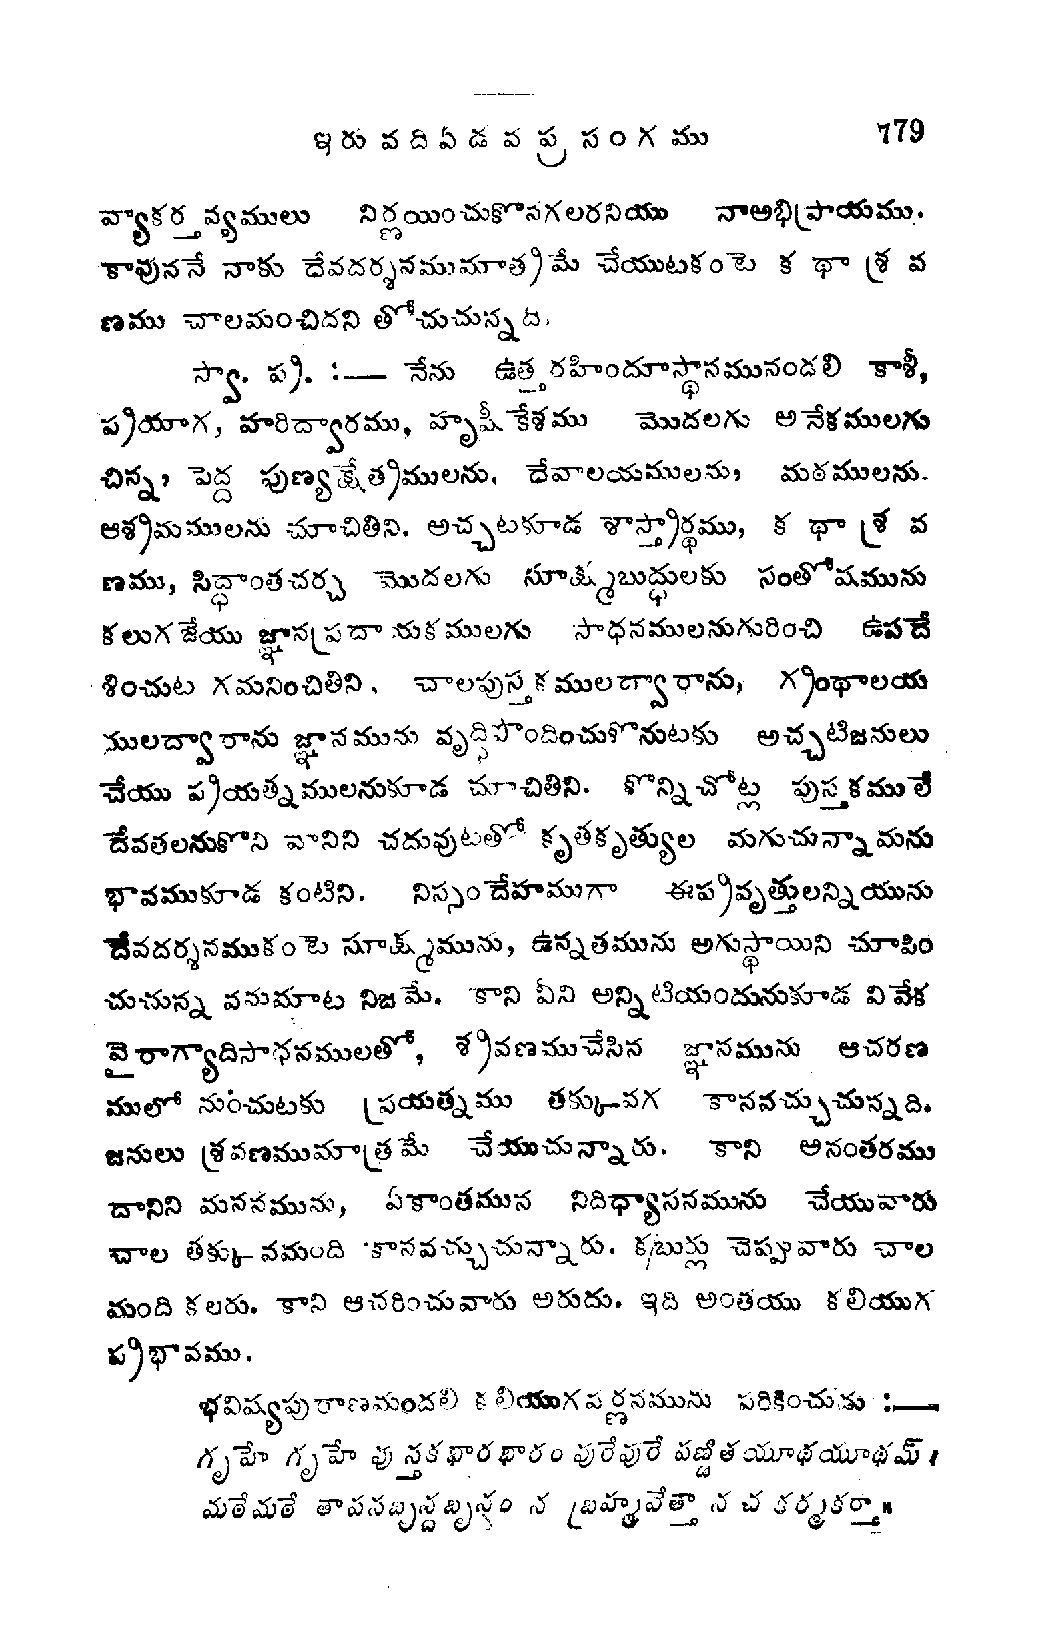 ఇరువదిఏడవప్రసంగము 779
వ్యాకర్తవ్యములు నిర్ణయించుకొనగలరనియు నాఅభిప్రాయము.
కావుననే నాకు దేవదర్శనముమాత్రమే చేయుటకంటె కథాశ్రవ
ణము చాలమంచిదని తోచుచున్నది.
స్వా. ప్ర. :— నేను ఉత్తరహిందూస్థానమునందలి కాశీ,
ప్రయాగ, హరిద్వారము, హృషీకేశము మొదలగు అనేకములగు
చిన్న, పెద్ద పుణ్యక్షేత్రములను, దేవాలయములను, మఠములను.
ఆశ్రమములను చూచితిని. అచ్చటకూడ శాస్త్రార్థము, కథాశ్రవ
ణము, సిద్ధాంతచర్చ మొదలగు సూక్ష్మబుద్ధులకు సంతోషమును
కలుగజేయు జ్ఞానప్రదాయకములగు సాధనములనుగురించి ఉపదే
శించుట గమనించితిని, చాలపుస్తకములద్వారాను, గ్రంథాలయ
ములద్వారాను జ్ఞానమును వృద్ధిపొందించుకొనుటకు అచ్చటిజనులు
చేయు ప్రయత్నములనుకూడ చూచితిని. కొన్నిచోట్ల పుస్తకములే
దేవతలనుకొని వానిని చదువుటతో కృతకృత్యుల మగుచున్నామను
భావముకూడ కంటిని. నిస్సందేహముగా ఈప్రవృత్తులన్నియును
దేవదర్శనముకంటె సూక్ష్మమును, ఉన్నతమును అగుస్థాయిని చూపిం
చుచున్న వనుమాట నిజమే. కాని వీని అన్నిటియందునుకూడ వివేక
వైరాగ్యాదిసాధనములతో, శ్రవణముచేసిన జ్ఞానమును ఆచరణ
ములో నుంచుటకు ప్రయత్నము తక్కువగ కానవచ్చుచున్నది.
జనులు శ్రవణముమాత్రమే చేయుచున్నారు. కాని అనంతరము
దానిని మననమును, ఏకాంతమున నిదిధ్యాసనమును చేయువారు
చాల తక్కువమంది కానవచ్చుచున్నారు. కబుర్లు చెప్పువారు చాల
మంది కలరు. కాని ఆచరించువారు అరుదు. ఇది అంతయు కలియుగ
ప్రభావము.
భవిష్యపురాణమందలి కలియుగవర్ణనమును పరికించుడు :—
గృహే గృహే పుస్తకభారభారం పురేపురే పణ్డితయూథయూథమ్।
మఠేమఠే తాపసబృన్దబృన్దం న బ్రహ్మవేత్తా న చ కర్మకర్తా॥